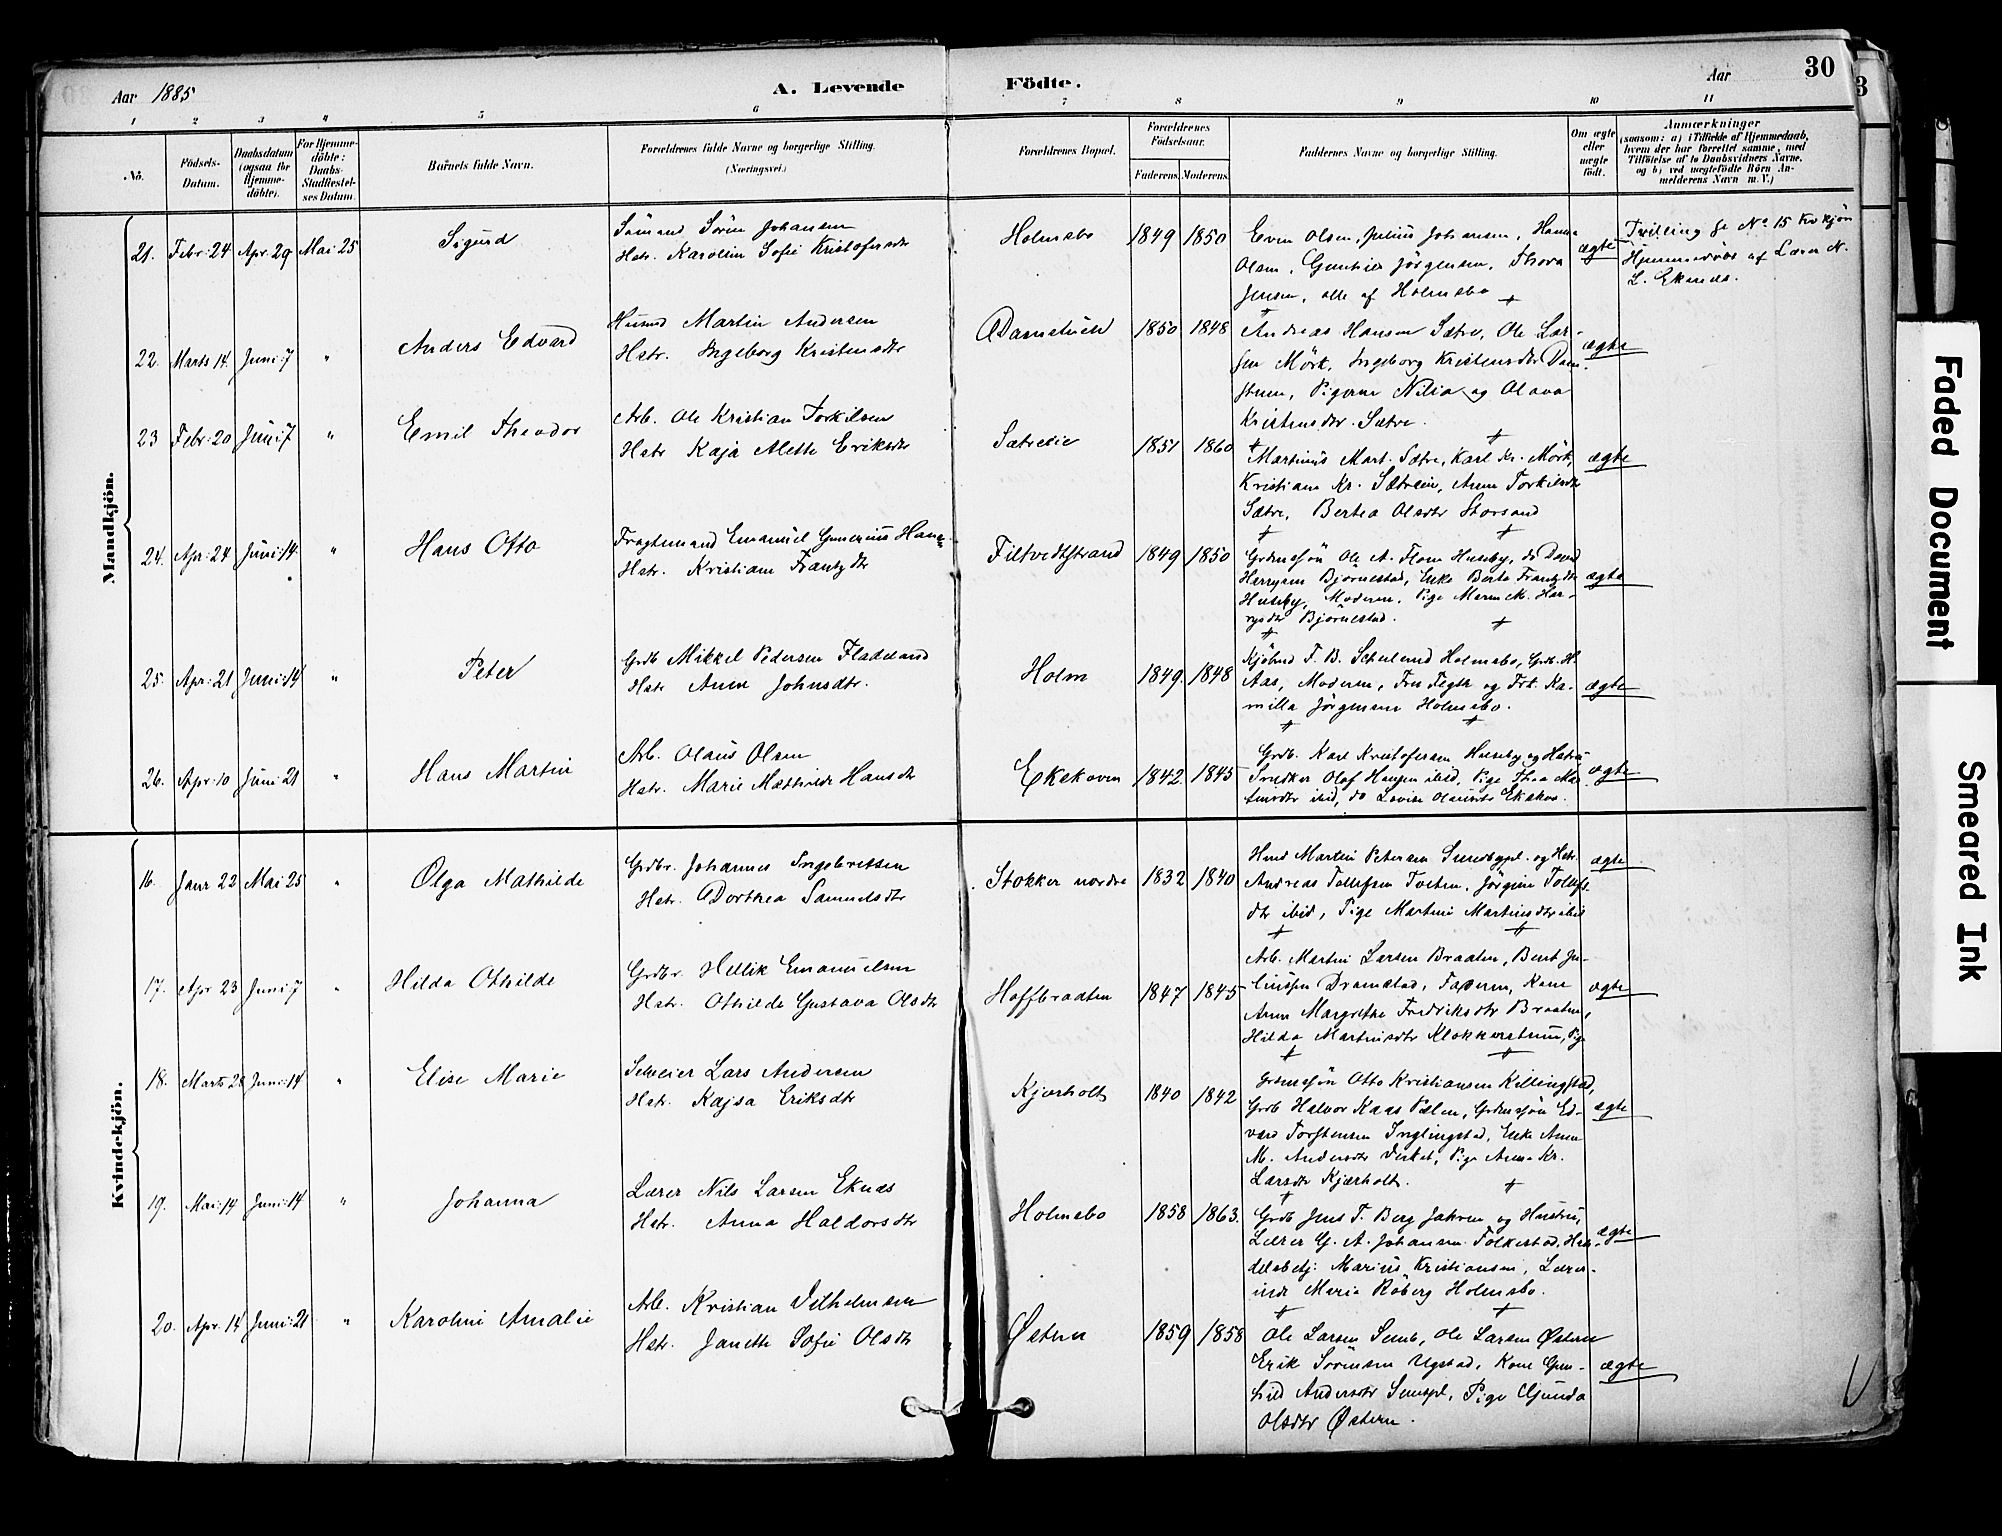 Aar 1885
A. Levende
Födte.
Aar
30
3
1 2 3 4 5 6 7 8 9 10 11
No.
Födsels-
Datum.
Daabsdatum
(ogsaa for
Hjemme-
döbte).
For Hjemme-
döbte:
Daabs-
Stadfæstel-
ses Datum.
Barnets fulde Navn.
Forældrenes fulde Navne og borgerlige Stilling.
(Næringsvei.)
Forældrenes Bopæl.
Forældrenes
Födselsaar.
Faderens. Moderens.
Faddernes Navne og borgerlige Stilling.
Om ægte
eller
uægte
födt.
Anmærkninger
(saasom: a) i Tilfælde af Hjemmedaab,
hvem der har forrettet samme, med
Tilföielse af to Daabsvidners Navne,
og b) ved uægtefödte Börn An-
melderens Navn m. V.)
Mandkjön.
21. Febr: 24 Apr. 29 Mai 25 Sigurd
Sömand Sörin Johansen
Hstr. Karolin Sofie Kristofersdtr
Holmsbo 1849 1850
Even Olsen, Julius Johansen, Hans
Olsen, Jörgensen, Thora
Jensen, alle af Holmsbo
ægte
Tvilling se No 15 Kvkjön
Hjemmedöbt af Lærer N.
L. Eknæs.
22. Marts 14. Juni: 7 " Anders Edvard
Husmd Martin Andersen
Hstr. Ingeborg Kristensdtr
1850 1848
Andreas Hansen Sætre, Ole Lar-
sen Mörk, Ingeborg Kristensdtr Dam-
Pigerne Nilia og Olava
Kristensdtr. Sætre.
ægte
23 Febr: 20 Juni 7 " Emil Theodor
Arb. Ole Kristian Torkilsen
Hstr Kaja Alette Eriksdtr
Sætreeie 1851 1860
Martinus Mart. Sætre, Karl Kr. Mörk,
Kristiane Kr. Sætreeie, Anne Torkilsdtr
Sætre, Bertea Olsdtr Storsand
ægte
24. Apr: 24 Juni: 14. " Hans Otto
Fragtemand Emanuel Gunerius Hans-
Hstr. Kristiane Frantzdtr
Filtvedtstrand 1849 1850
Grdmssön Ole A. Huseby, do David
Bjørnestad, Enke Berte Frantzdtr
Huseby, Moderen, Pige Maren M. Har-
Bjørnestad.
ægte
25. Apr: 21 Juni: 14 " Peter
Grdb Mikkel Pedersen Fladeland
Hstr Anne Johnsdtr.
Holm 1849. 1848
Kjöbmd T. B. Holmsbo, Grdb. H.
Aas, Moderen, Fru og Frk. Ka-
milla Jörgensen Holmsbo.
ægte
26. Apr: 10 Juni: 21 " Hans Martin
Arb. Olaus Olsen
Hstr. Marie Mathilde Hansdtr
Ekekoven 1842. 1845
Grdb. Karl Kristofersen Huseby og Hstru
Snedker Olaf Hansen ibid, Pige Thea Mar-
tinsdtr ibid, do Lovise Olausdtr Ekekov.
ægte
Kvindekjön.
16. Janr 22 Mai 25 " Olga Mathilde
Grdbr. Johannes Ingebretsen
Hstr. Dorthea Samuelsdtr
Stokker nordre 1832 1840
Hmd Martin Petersen og Hstr.
Andreas Tollefsen Jörgine Tollefs-
dtr ibid, Pige Martine Martinsdtr ibid
ægte
17. Apr 23 Juni: 7 " Hilda Othilde
Grdbr. Hellik Emanuelsen
Hstr. Othilde Gustava Olsdtr
Hoffbraaten 1847 1845
Arb. Martin Larsen Braaten, Bent Ju-
liussen Dramstad, Faderen, Kone
Anne Margrethe Fredriksdtr Braaten,
Hilda Martinsdtr Klokkerstuen, Pige
ægte
18. Marts 28 Juni: 14 " Elise Marie
Lars Andersen
Hstr. Kajsa Eriksdtr
Kjærholt 1840 1842
Grdmssön Otto Kristiansen Killingstad,
Grdb Halvor Kaas Grdmssön Ed-
vard Torstensen Inglingstad, Enke Anne
M. Andersdtr Virket, Pige Anne Kr.
Larsdtr Kjærholt.
ægte
19. Mai: 14 Juni: 14 " Johanna
Lærer Nils Larsen Eknæs
Hstr. Anna Haldorsdtr
Holmsbo 1858 1863.
Grdb Jens T. Berg Jahren og Hustru,
Lærer G. A. Johansen Folkestad, Han-
delsbetj: Marius Kristiansen, Lærer-
inde Marie Röberg Holmsbo.
ægte
20. Apr. 14 Juni: 21 " Karoline Amalie
Arb. Kristian Vilhelmsen
Hstr. Janette Sofie Olsdtr
Østern 1859 1858
Ole Larsen Semb, Ole Larsen Østern
Erik Sörensen Ugstad, Kone Gun-
hild Andersdtr Pige Gjunda
Olsdtr Østern.
ægte
Faded Document
Smeared Ink